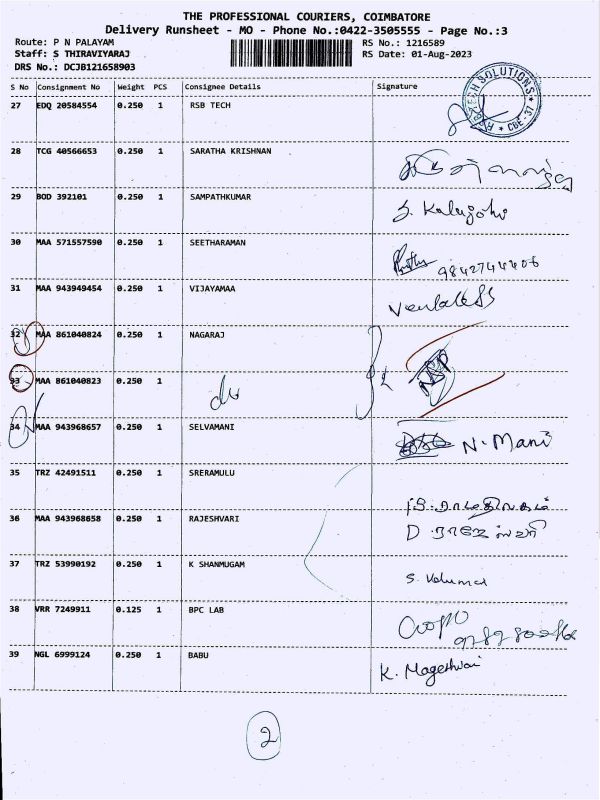 THE PROFESSIONAL COURIERS, COIMBATORE
Delivery Runsheet - MO - Phone No.:0422-3505555 - Page No.:3
Route: P N PALAYAM RS No.: 1216589
Staff: S THIRAVIYARAJ RS Date: 01-Aug-2023
DRS No.: DCJB121658903
S No Consignment No Weight PCS Consignee Details Signature
27 EDQ 20584554 0.250 1 RSB TECH
TECH SOLUTIONS * CBE-37 *
28 TCG 40566653 0.250 1 SARATHA KRISHNAN
29 BOD 392101 0.250 1 SAMPATHKUMAR
30 MAA 571557590 0.250 1 SEETHARAMAN
9842744406
31 MAA 943949454 0.250 1 VIJAYAMAA
32 MAA 861040824 0.250 1 NAGARAJ
33 MAA 861040823 0.250 1 do
34 MAA 943968657 0.250 1 SELVAMANI N. Mani
35 TRZ 42491511 0.250 1 SRERAMULU
36 MAA 943968658 0.250 1 RAJESHVARI
37 TRZ 53990192 0.250 1 K SHANMUGAM
38 VRR 7249911 0.125 1 BPC LAB
39 NGL 6999124 0.250 1 BABU
2